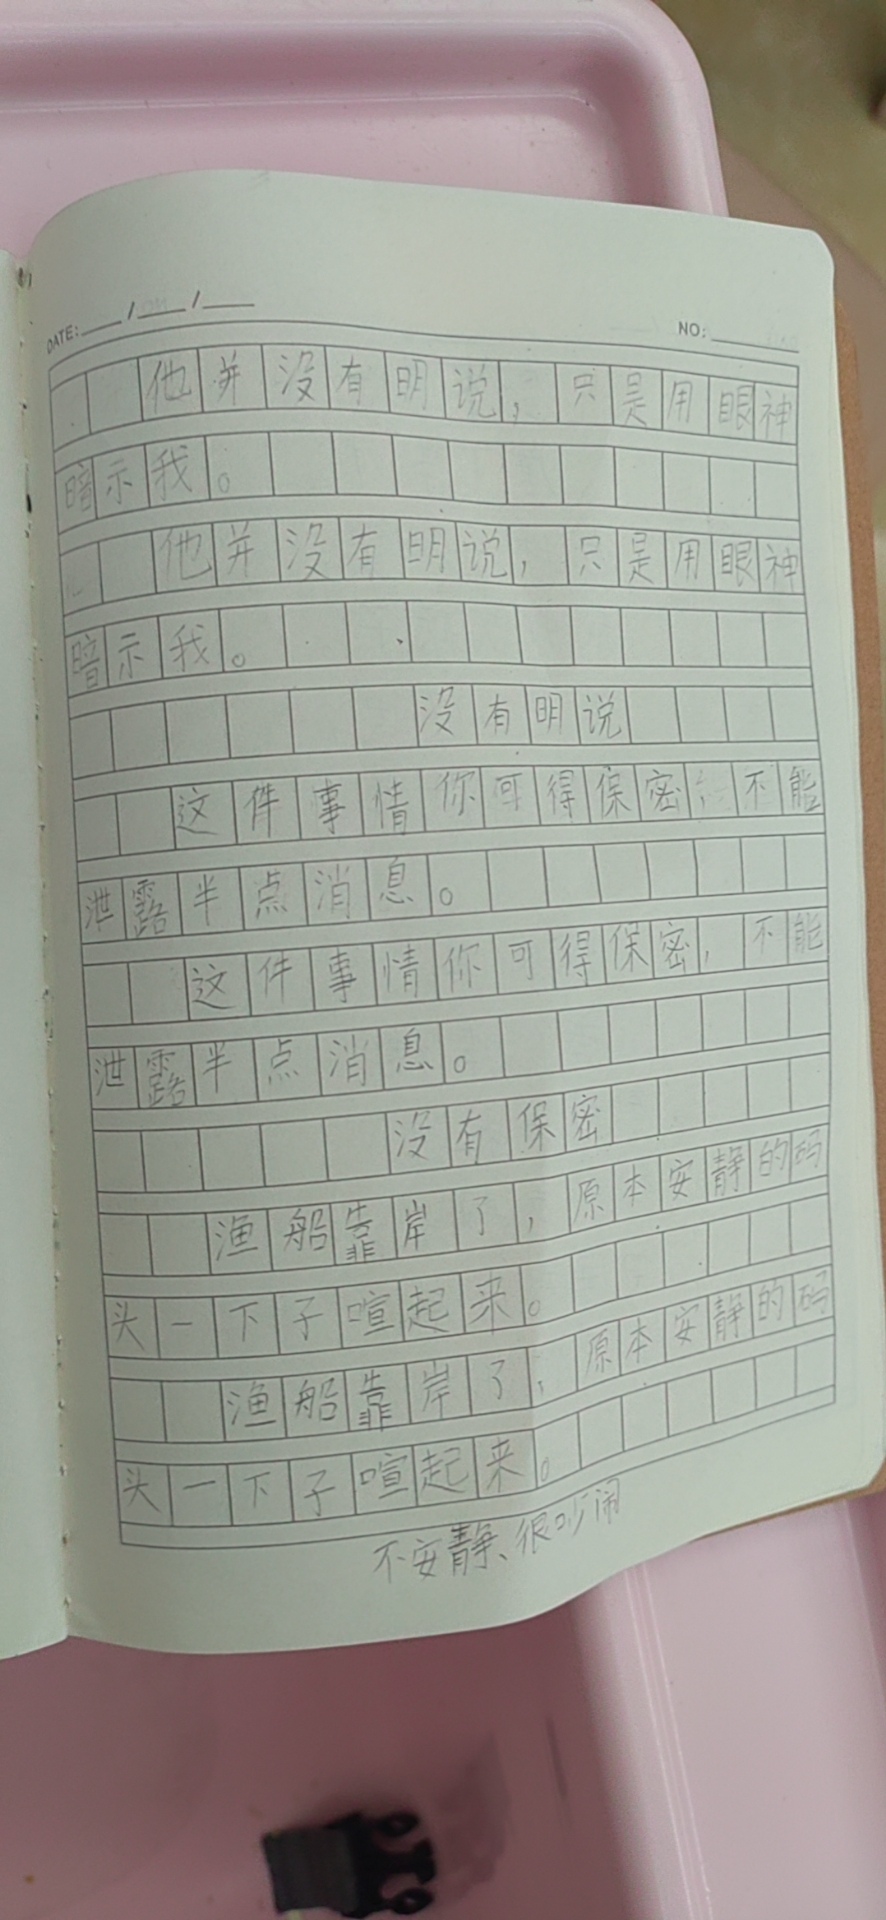 DATE: / /
NO:
他并没有明说，只是用眼神
暗示我。
他并没有明说，只是用眼神
暗示我。
没有明说
这件事情你可得保密，不能
泄露半点消息。
这件事情你可得保密，不能
泄露半点消息。
没有保密
渔船靠岸了，原本安静的码
头一下子喧起来。
渔船靠岸了，原本安静的码
头一下子喧起来。
不安静、很吵闹